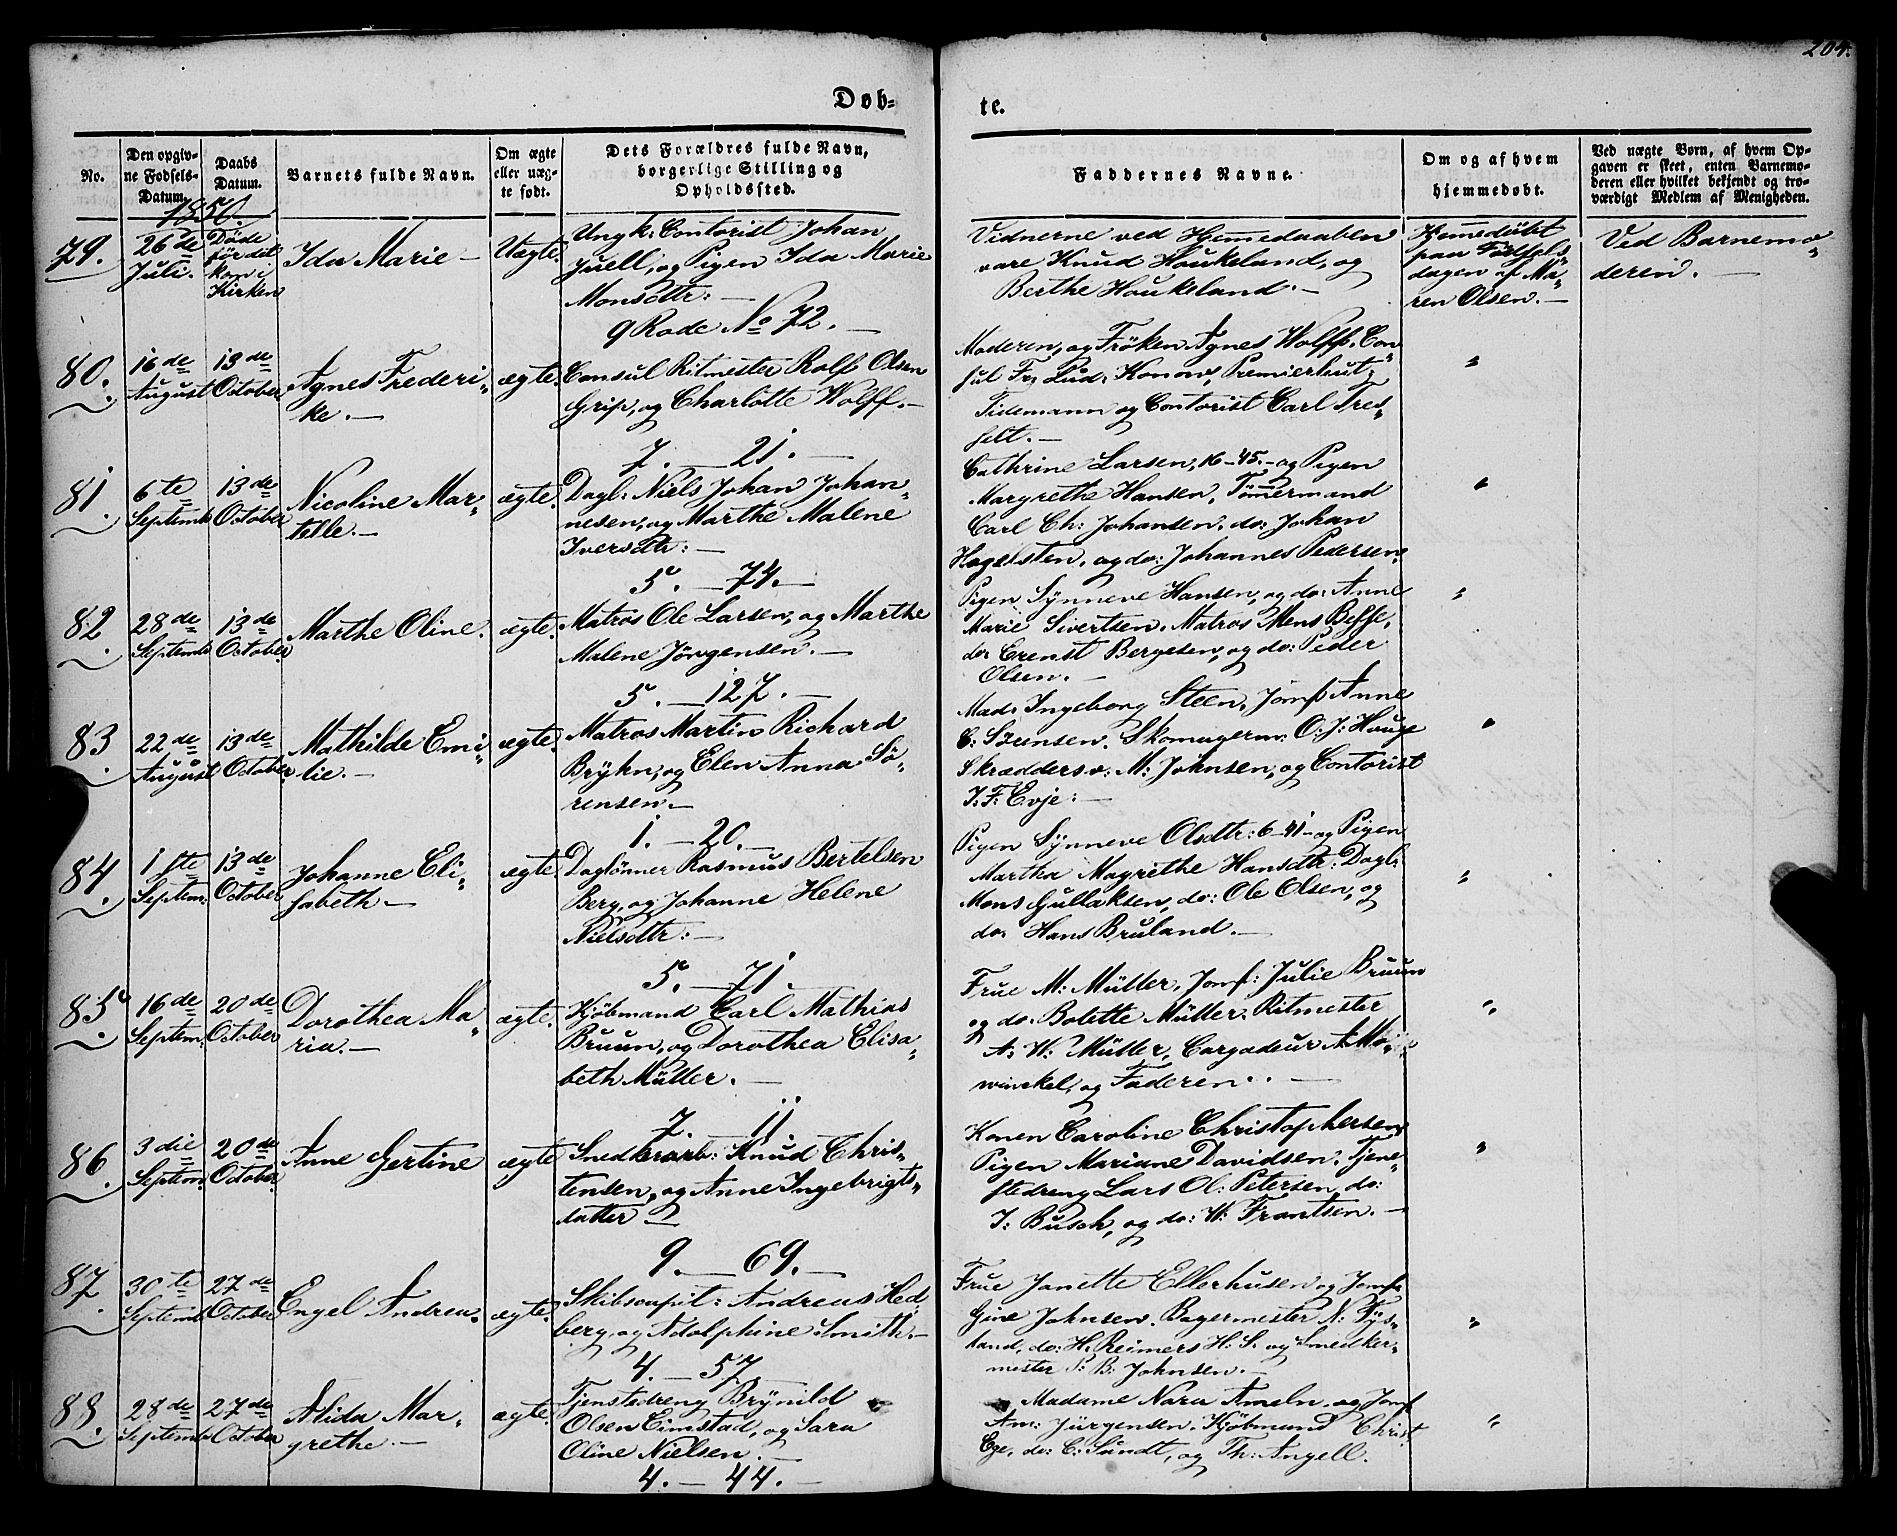 204.
Døb=
te.
No.
Den opgiv-
ne Fødsels-
Datum.
Daabs
Datum.
Barnets fulde Navn.
Om ægte
eller uæg-
te født.
Dets Forældres fulde Navn,
borgerlige Stilling og
Opholdssted.
Faddernes Navne.
Om og af hvem
hjemmedøbt.
Ved uægte Børn, af hvem Op-
gaven er skeet, enten Barnemo-
deren eller hvilket bekjendt og tro-
værdigt Medlem af Menigheden.
1850.
79.
26de
Juli.
Döde
för det
kom i
Kirken
Ida Marie —
Uægte.
Ungk: Contorist Johan
Juell, og Pigen Ida Marie
Monsdtr: —
9 Rode No 72. —
Vidnerne ved Hjemedaaben
vare Knud Houkeland, og
Berthe Houkeland. —
Hjemedöbt
paa Födsels
dagen af Ma-
ren Olsen. —
Ved Barnemo
deren. —
80.
16de
August
13de
October
Agnes Frederi-
ke. —
ægte.
Consul Ritmester Rolf Olsen
Grip, og Charlotte Wolff. —
7. — 21. —
Moderen, og Fröken Agnes Wolff, Con
sul Fr. Lud: Konow, Premierleut:
Tidemann og Contorist Carl Tred-
selt. —
"
81.
6te
Septemb
13de
October
Nicoline Mar-
tille. —
ægte.
Dagl: Niels Johan Johan-
nesen, og Marthe Malene
Iversdtr: —
5. — 74. —
Cathrine Larsen, 16-45. — og Pigen
Margrethe Hansen, Tömmermand
Carl Ch: Johansen. do: Johan
Hagelsten, og do: Johannes Pedersen.
"
82.
28de
Septemb
13de
October.
Marthe Oline.
ægte.
Matros Ole Larsen, og Marthe
Malene Jörgensen. —
5. — 127. —
Pigen Synneve Hansen, og do: Anne
Marie Sivertsen. Matros Mens
do: Bergesen, og do: Peder
Olsen. —
"
83.
22de
August
13de
October
Mathilde Emi-
lie. —
ægte.
Matros Martin Richard
Bryhn, og Elen Anna Sö-
rensen. —
1. — 20. —
Mad: Ingeborg Steen, Jomf Anne
C: Sörensen. Skomagerm: O: J: Houge
Skræddersv: M: Johnsen, og Contorist
J. F: Evje: —
"
84.
1ste
Septem.
13de
October
Johanne Eli-
sabeth —
ægte.
Daglönner Rasmus Bertelsen
Berg, og Johanne Helene
Nielsdtr: —
5. — 71. —
Pigen Synneve Olsdtr: 6-41 — og Pigen
Martha Magrethe Hansdtr: Dagl:
Mons Gullaksen, do: Ole Olsen, og
do: Hans Bruland. —
"
85.
16de
Septem.
20de
October
Dorothea Ma-
ria. —
ægte.
Kjöbmand Carl Mathias
Bruun, og Dorothea Elisa-
beth Müller. —
7. 11.
Frue M: Müller, Jomf: Julie Bruun
og do. Bolette Müller. Ritmester
A: W: Müller, Cargadeur A.
winckel, og Faderen. —
"
86.
3die
Septem.
20de
October.
Anne Gertine
ægte
Snedkerarb: Knud Chris-
tensen, og Anne Ingebrigts-
datter —
9. — 69. —
Konen Caroline Christophersen,
Pigen Mariane Davidsen. Tjene-
stedreng Lars Ol: Petersen, do:
J: Busch, og do: W: Frantsen. —
"
87.
30te
Septemb
27de
October
Engel Andrea.
ægte.
Skibscapit: Andreas Hed-
berg, og Adolphine Smith. —
4. — 57.
Frue Janette Ellerhusen og Jomf:
Gine Johnsen. Bagermester N:
land, do: H. Reimers H: S. og Smedker-
mester P: B: Johnsen. —
"
88.
28de
Septemb
27de
October
Alida Mar-
grethe —
ægte.
Tjenstedreng Brynild
Olsen Eimstad, og Sara
Oline Nielsen. —
4. — 44. —
Madame Nara Ameln, og Jomf
Am: Jürgensen. Kjöbmand Christ
Ege, do: C: Sundt, og Th: Angell.
"